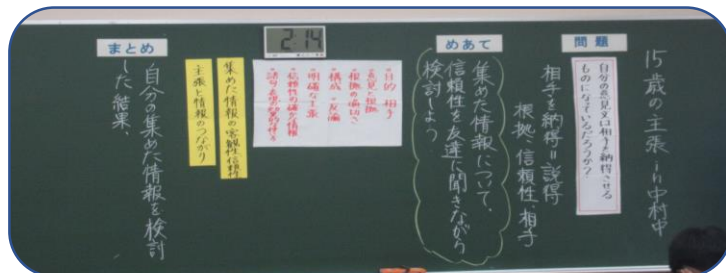 15歳の主張 in 中村中
問題
自分の意見文は相手を納得させる
ものになっているだろうか?
相手を納得=説得
根拠、信頼性、相手
めあて
集めた情報について、
信頼性を友達に聞きながら
検討しよう
2:14
・目的 相手
・意見と根拠
・根拠の適切さ
・構成
・明確な主張
・信頼性の確かな情報
集めた情報の客観性、信頼性
主張と情報のつながり
まとめ
自分の集めた情報を検討
した結果、